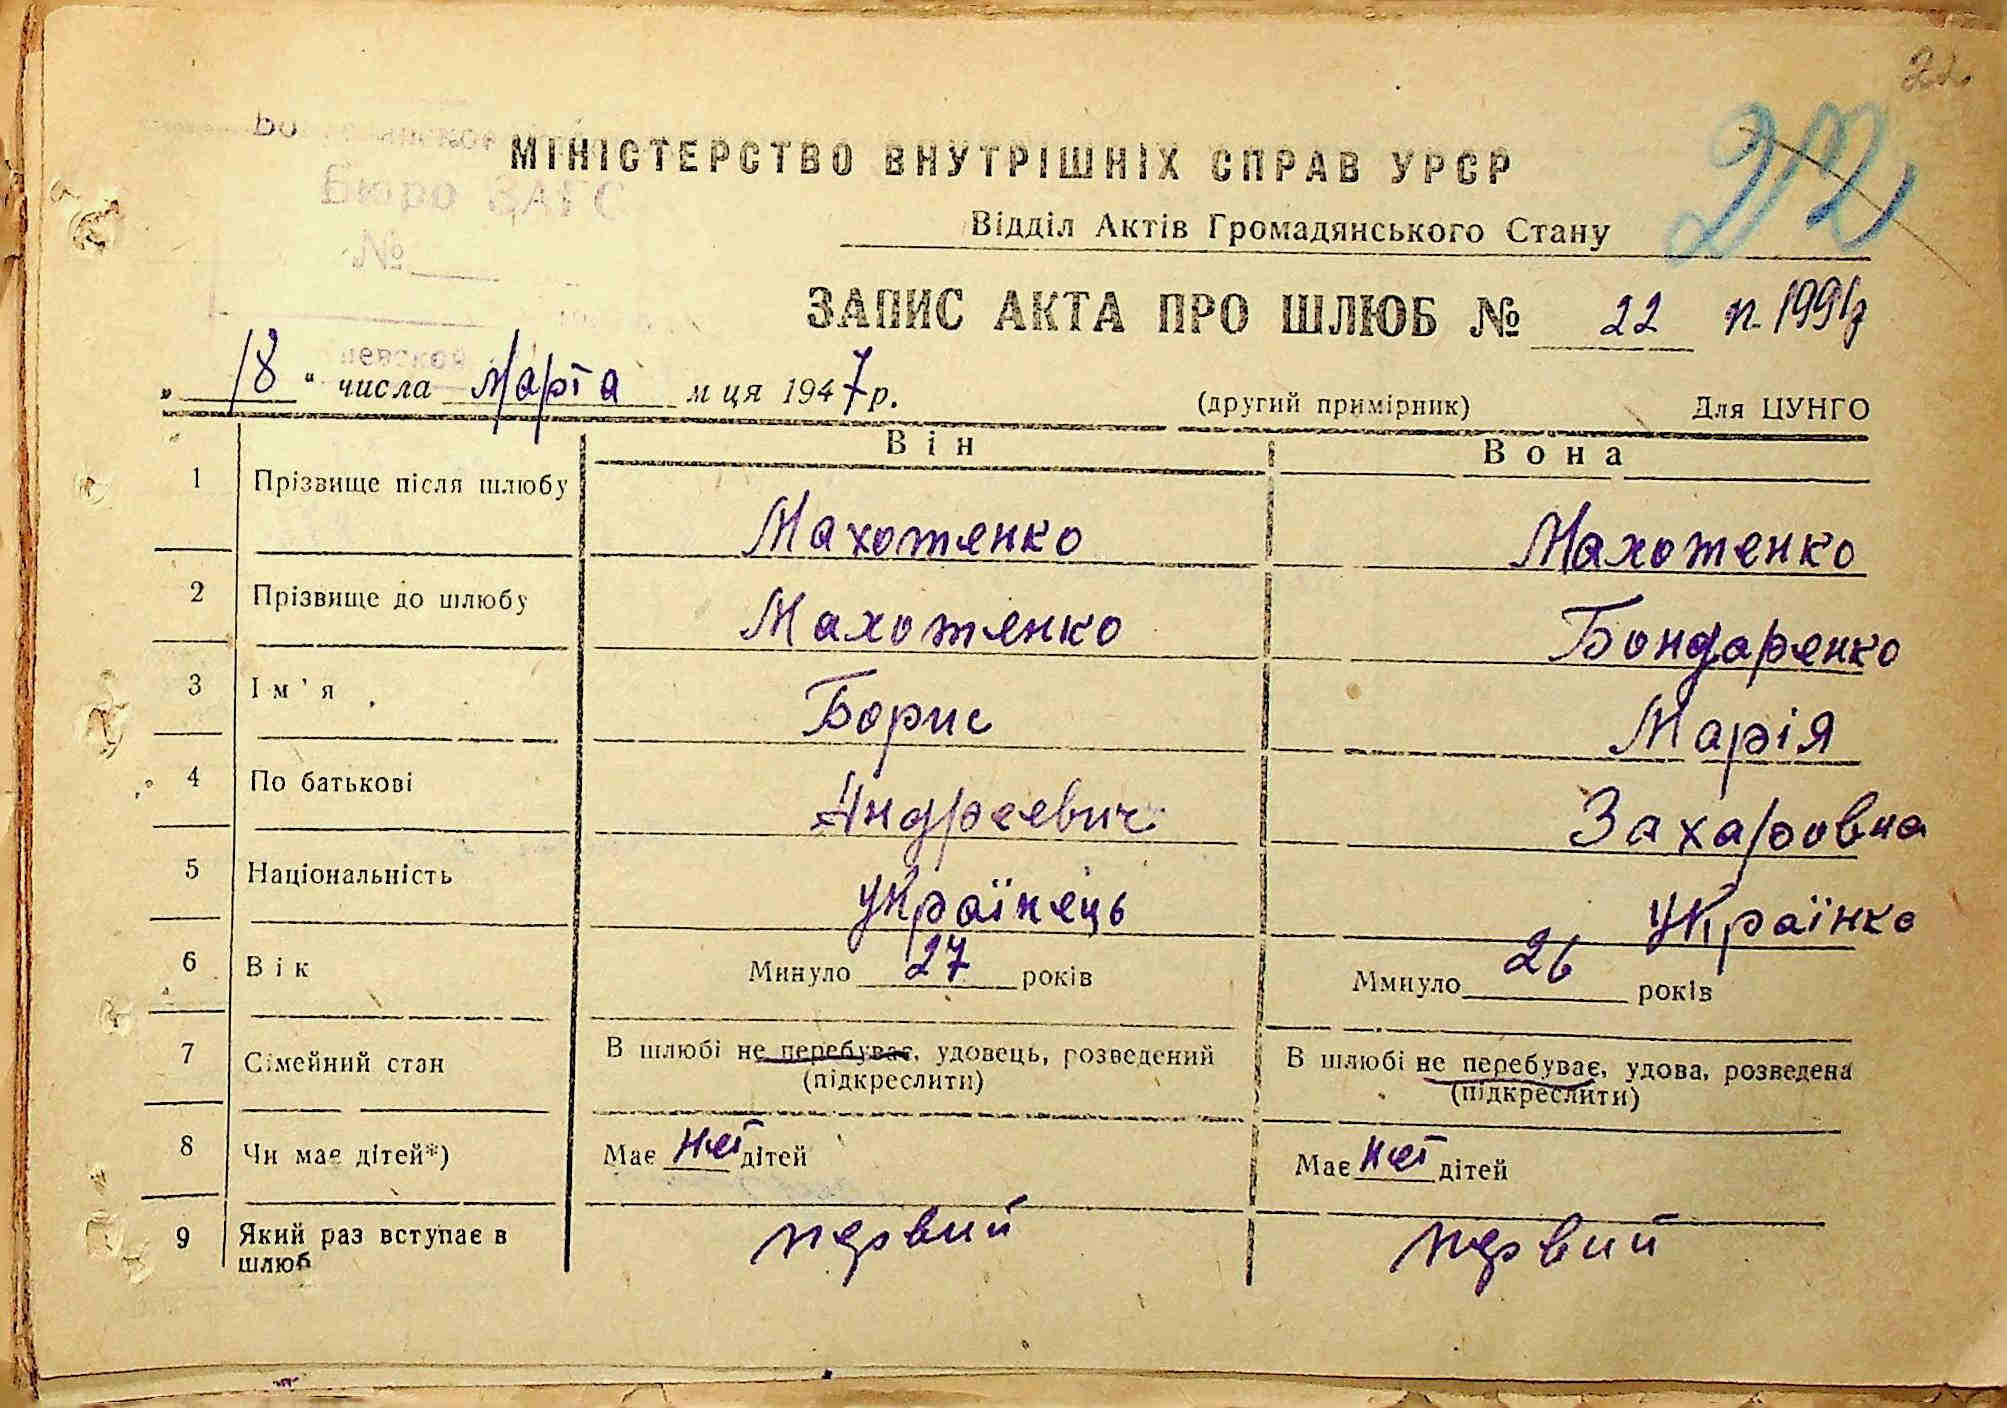 22
22
МІНІСТЕРСТВО ВНУТРІШНІХ СПРАВ УРСР
Бюро ЗАГС
Відділ Актів Громадянського Стану
№
ЗАПИС АКТА ПРО ШЛЮБ № 22
„ 18 “ числа Марта м ця 1947 р.
(другий примірник) Для ЦУНГО
Він Вона
1 Прізвище після шлюбу Махотенко Махотенко
2 Прізвище до шлюбу Махотенко Бондаренко
3 Ім'я Борис Марія
4 По батькові Андреевич Захаровна
5 Національність українець Українка
6 Вік Минуло 27 років Ммнуло 26 років
7 Сімейний стан В шлюбі не перебуває, удовець, розведений (підкреслити) В шлюбі не перебуває, удова, розведена (підкреслити)
8 Чи має дітей*) Має нет дітей Має нет дітей
9 Який раз вступає в шлюб первий первий